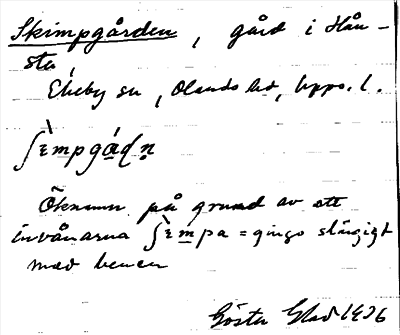 Skimpgården, gård i Hån-
sta,
Ekeby sn, Olands hd, Upps. l.
ʃὲmpgádṇ
Öknamn på grund av att
invånarna ʃὲmpa = gingo slängigt
med benen
Gösta 1926